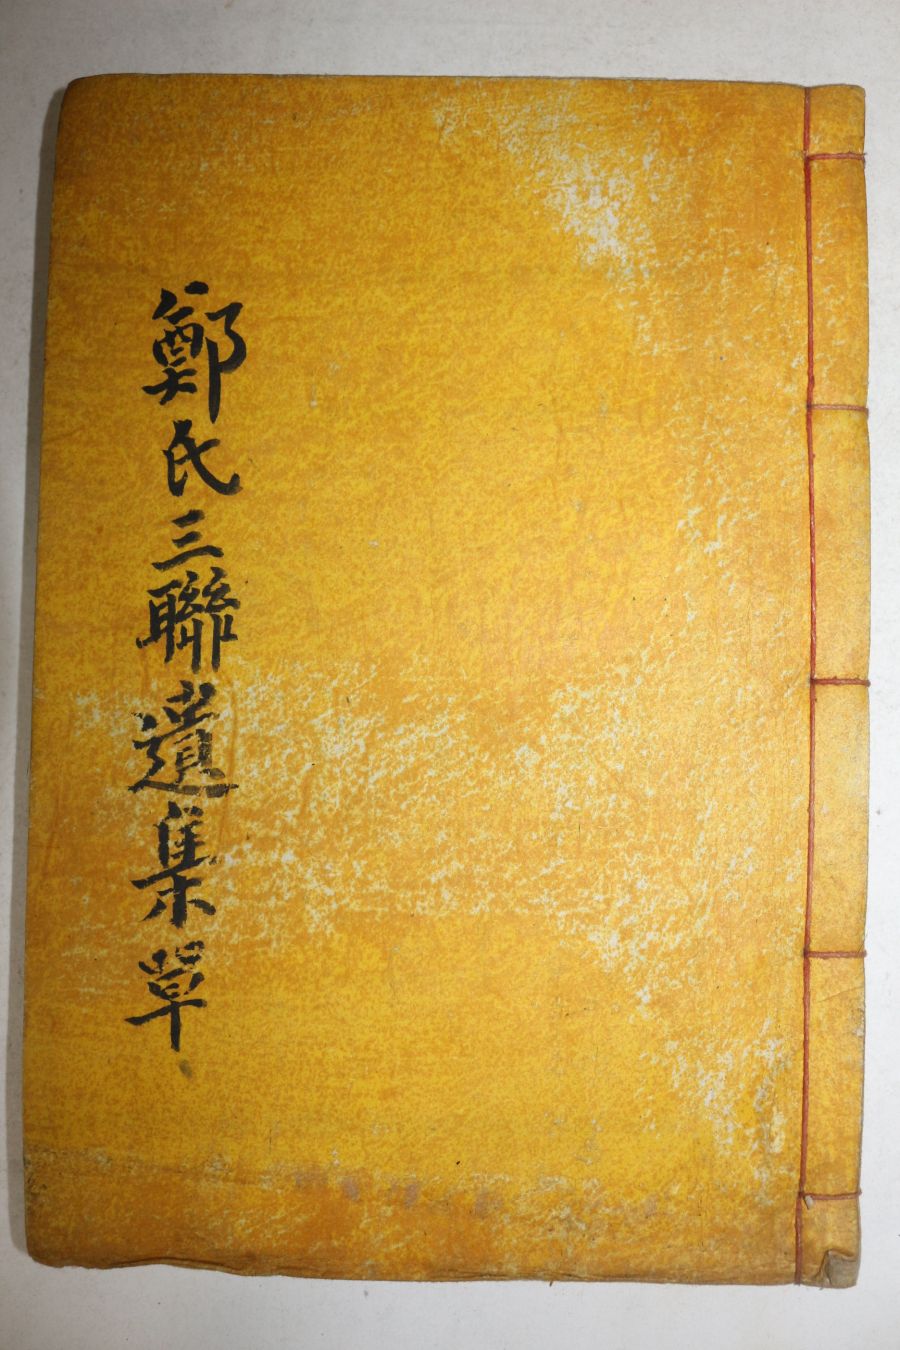 鄭氏三聯遺集草